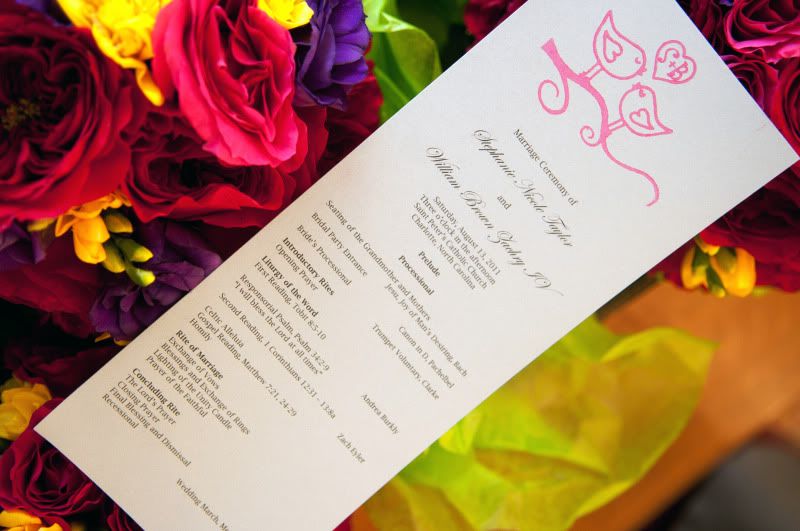 S+B
Marriage Ceremony of
Stephanie Nicole Taylor
and
William Brown IV
Saturday, August 13, 2011
Three o'clock in the afternoon
Saint Peter's Catholic Church
Charlotte, North Carolina
Prelude
Processional
Seating of the Grandmother and Mothers
Jesu, Joy of Man's Desiring, Bach
Bridal Party Entrance
Canon in D, Pachelbel
Bride's Processional
Trumpet Voluntary, Clarke
Introductory Rites
Opening Prayer
Liturgy of the Word
First Reading, Tobit 8:5-10
Andrea Burkly
Responsorial Psalm, Psalm 34:2-9
"I will bless the Lord at all times"
Second Reading, 1 Corinthians 12:31 - 13:8a
Zach Eyler
Celtic Alleluia
Gospel Reading, Matthew 7:21, 24-29
Homily
Rite of Marriage
Exchange of Vows
Blessings and Exchange of Rings
Lighting of the Unity Candle
Prayer of the Faithful
Concluding Rite
The Lord's Prayer
Closing Prayer
Final Blessing and Dismissal
Recessional
Wedding March,